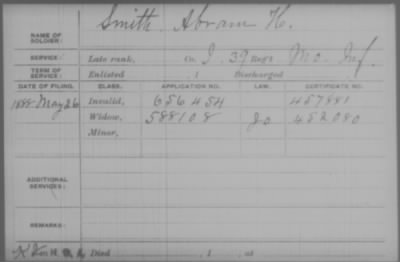 Smith, Abram H.
NAME OF SOLDIER:
SERVICE: Late rank, Co. I, 39 Reg't Mo. Inf.
TERM OF SERVICE: Enlisted , 1 Discharged
DATE OF FILING. CLASS. APPLICATION NO. LAW. CERTIFICATE NO.
1888 May 26 Invalid, 656454 457881
Widow, 588108 452080
Minor,
ADDITIONAL SERVICES:
REMARKS:
Died , 1 , at